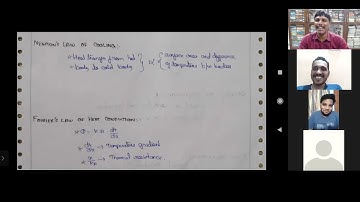 NEWTON'S LAW OF COOLING:
* Heat transfer from hot
body to cold body
surface area and difference
of temperature b/w bodies
FOURIER'S LAW OF HEAT CONDUCTION:
dt/dx → Temperature gradient
→ Thermal resistance